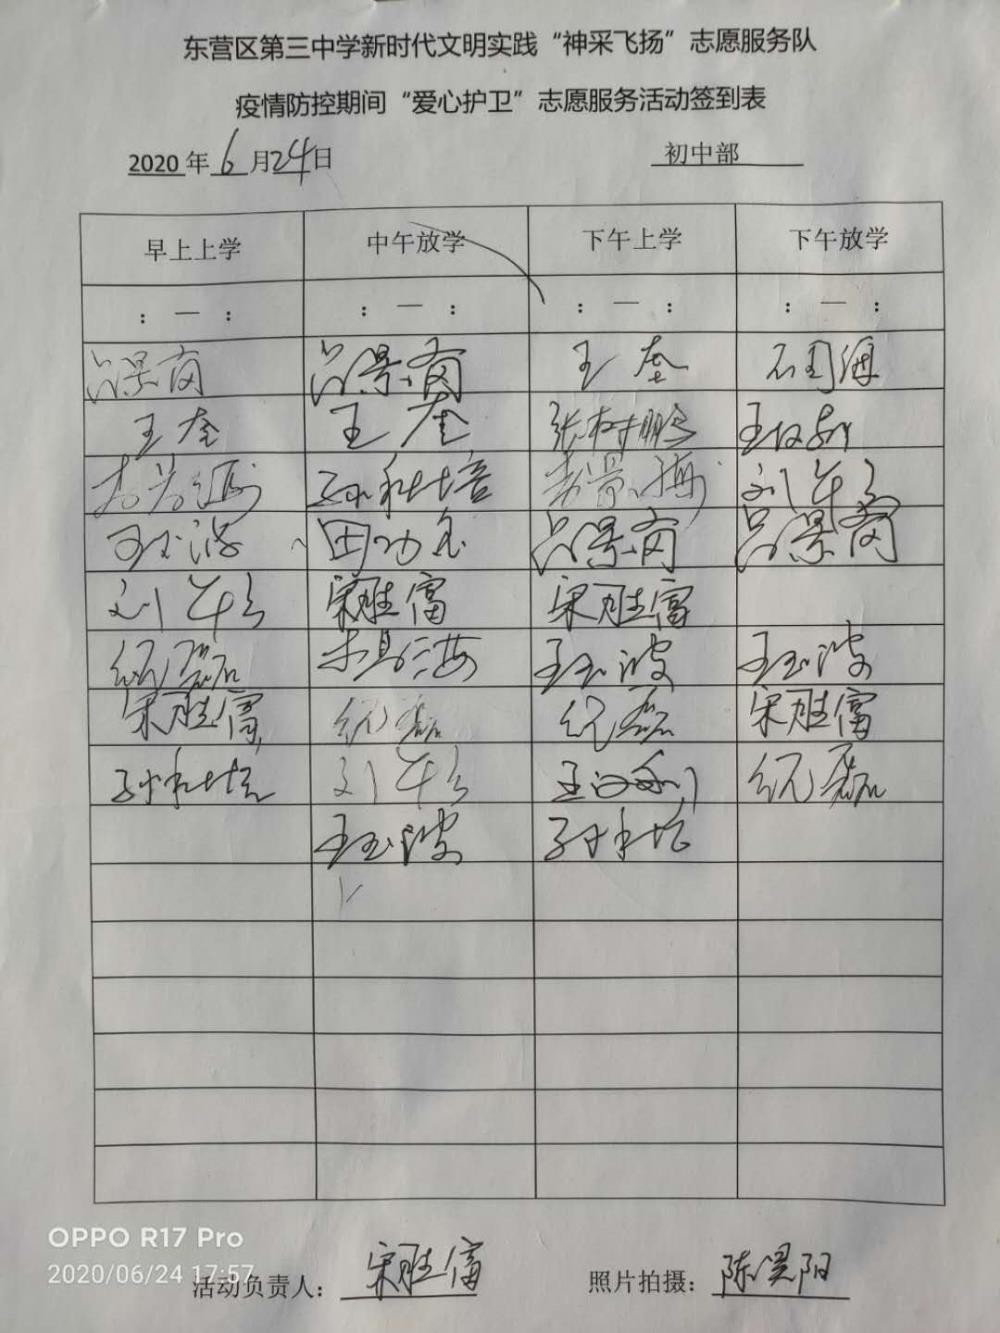 东营区第三中学新时代文明实践“神采飞扬”志愿服务队
疫情防控期间“爱心护卫”志愿服务活动签到表
2020 年 6 月 24 日 初中部
早上上学 中午放学 下午上学 下午放学
： — ： ： — ： ： — ： ： — ：
吕景岗 吕景岗 王奎 石国海
王奎 王奎 张树鹏
孙和培 刘军
田功玉 吕景岗 吕景岗
刘军 宋胜富 宋胜富
纪磊 王玉波 王玉波
宋胜富 纪磊 纪磊 宋胜富
孙和培 刘军 纪磊
王玉波 孙和培
OPPO R17 Pro
2020/06/24 17:57
活动负责人： 宋胜富 照片拍摄： 陈昊阳